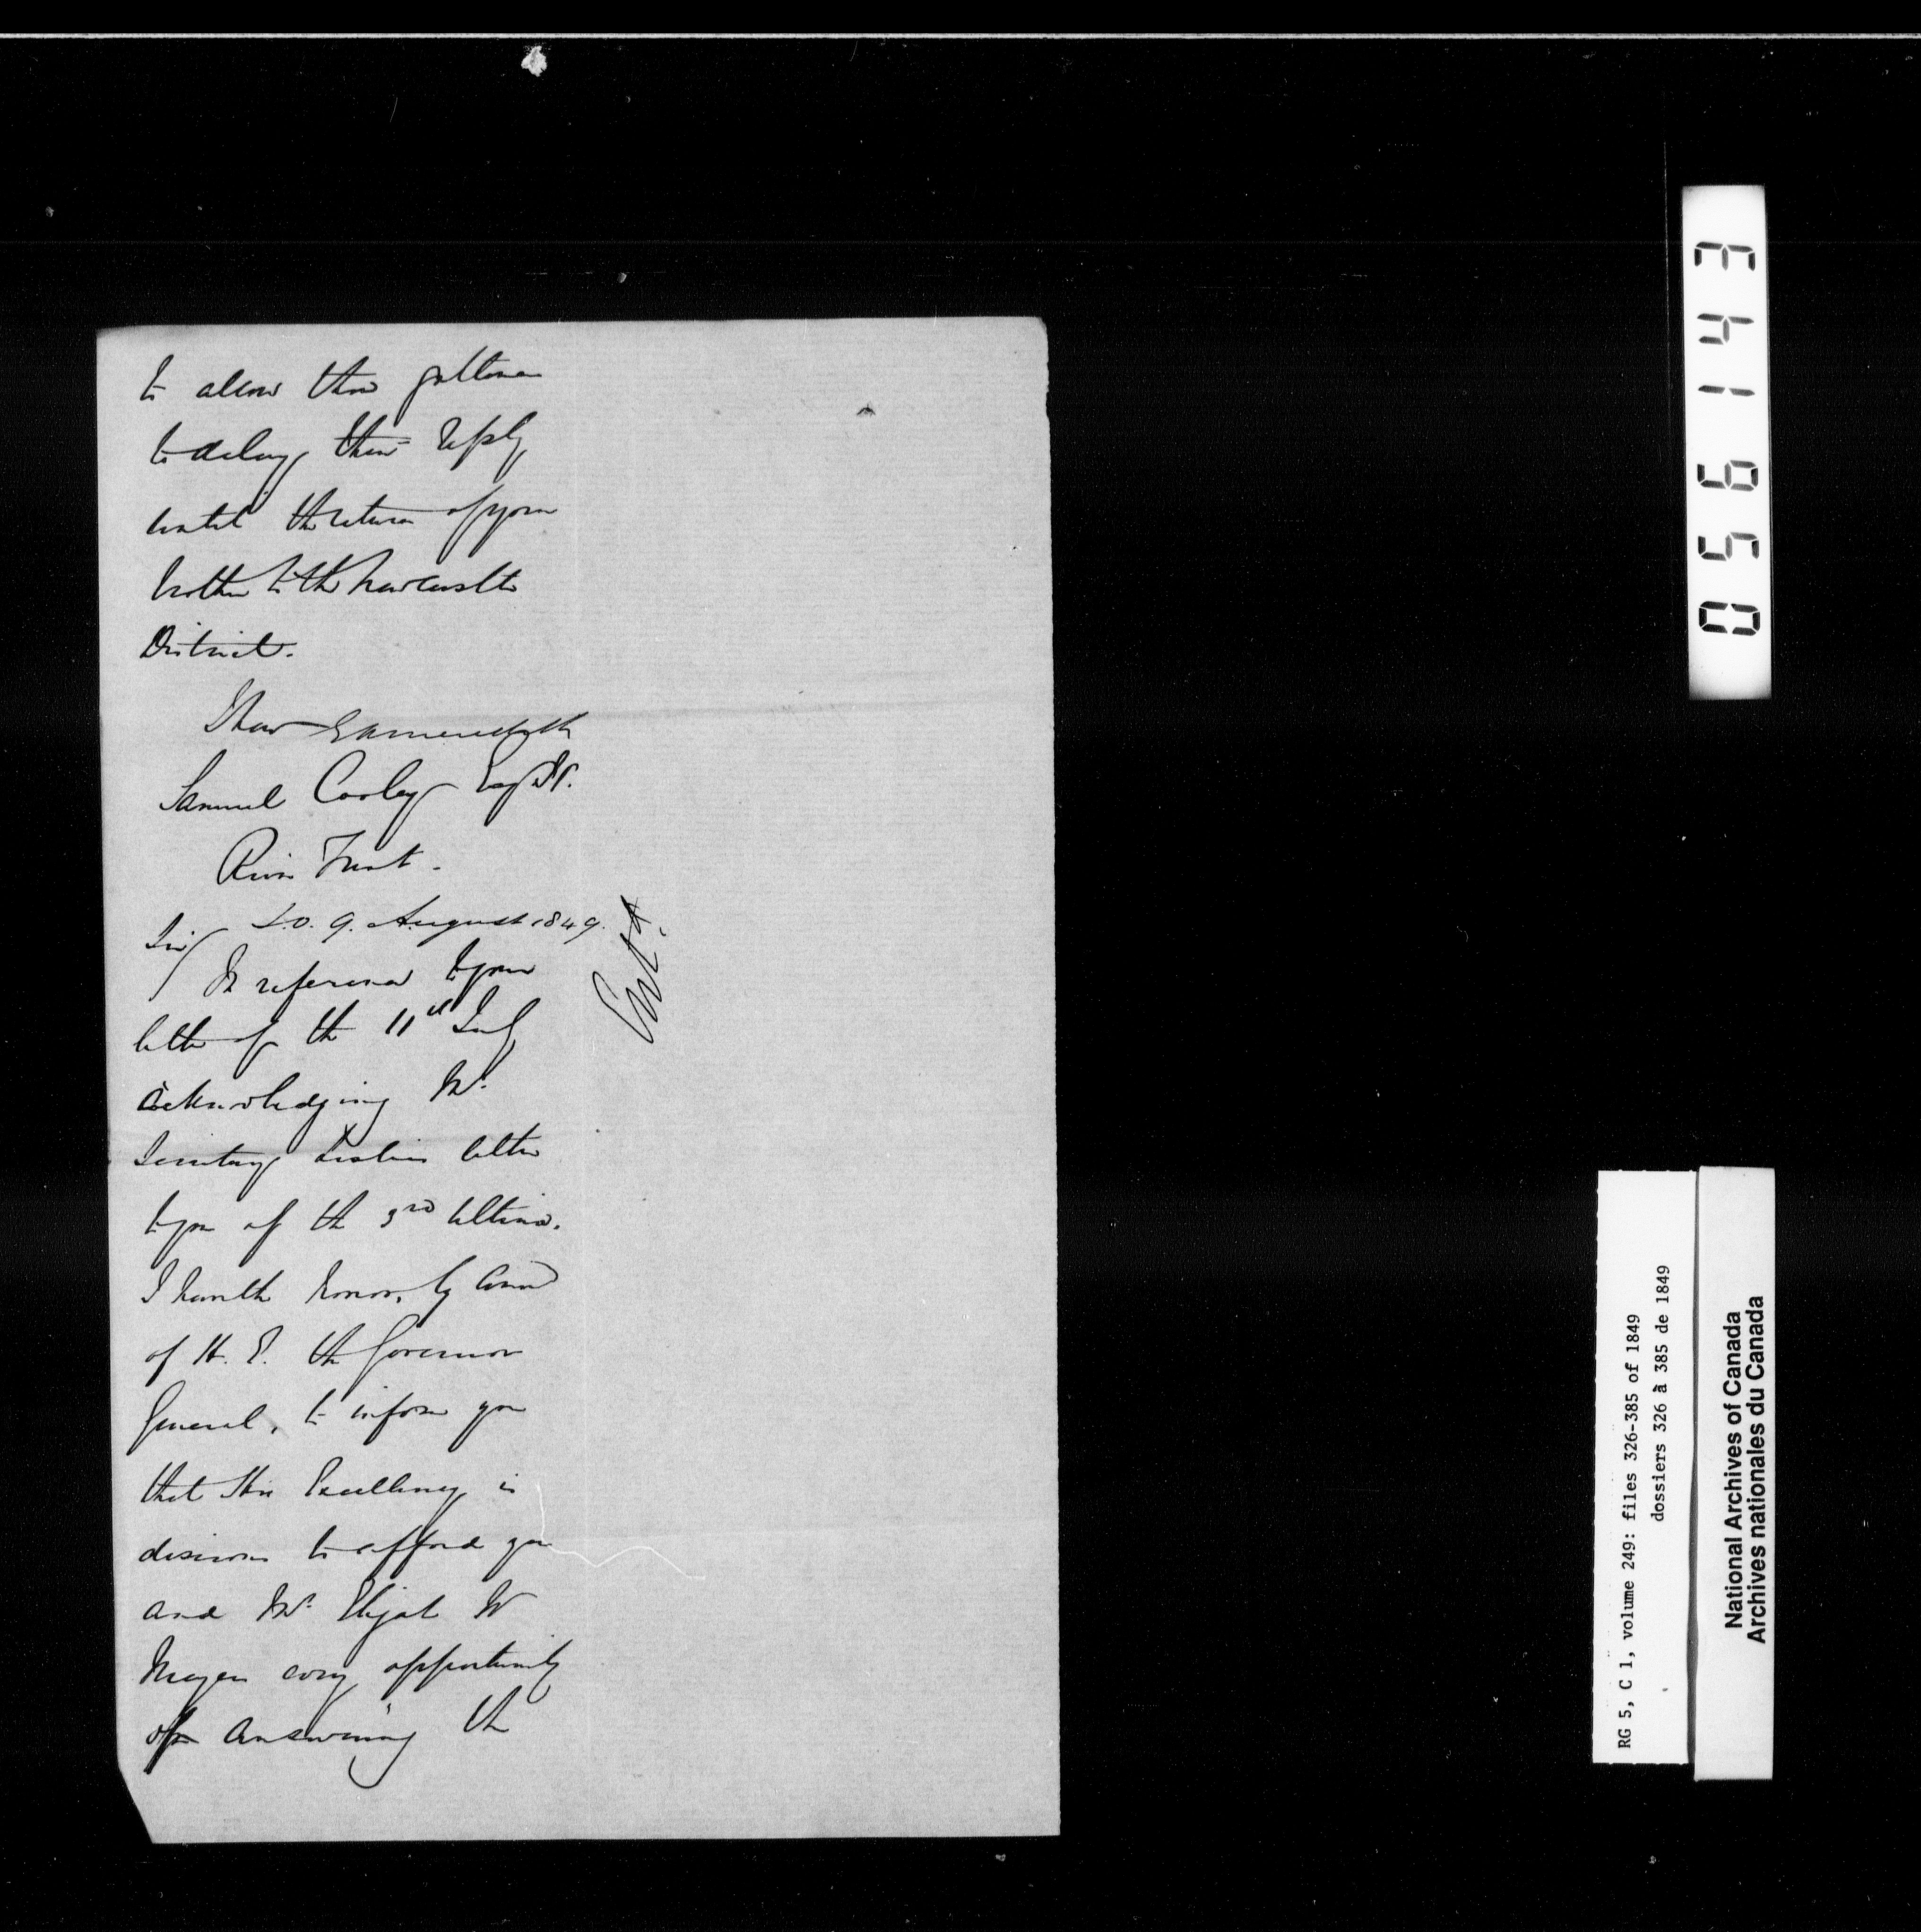 to allow those gentlemen
to delay their reply
until the return of your
brother to the Newcastle
District.
I have
Samuel Cooley Esq.
River Trent.
S.O. 9. August 1849.
Sir
In reference to your
letter of the 11th July
acknowledging Mr.
Secretary Leslie's letter
to you of the 3rd Ultimo.
I have the honor, by Comd
of H. E. the Governor
General, to inform you
that His Excellency is
desirous to afford you
and Mr. Elijah W
Meyers every opportunity
of answering the
Entd.
056143
RG 5, C 1, volume 249: files 326-385 of 1849
dossiers 326 à 385 de 1849
National Archives of Canada
Archives nationales du Canada